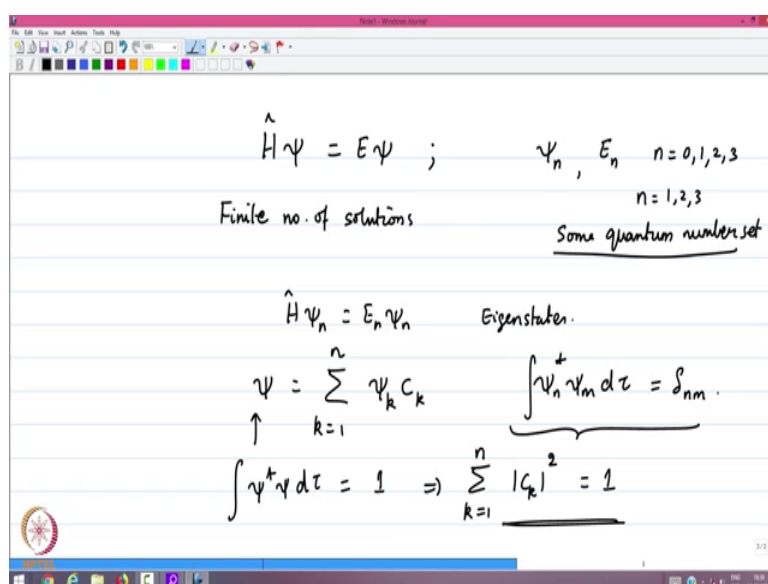 Note1 - Windows Journal
File Edit View Insert Actions Tools Help
Ĥψ = Eψ ; ψₙ , Eₙ n = 0,1,2,3
n = 1,2,3
Finite no. of solutions
Some quantum number set
Ĥψₙ = Eₙψₙ Eigenstates.
ψ = ∑ₖ₌₁ⁿ ψₖ cₖ ∫ψₙ* ψₘ dτ = δₙₘ .
∫ψ*ψ dτ = 1 ⇒ ∑ₖ₌₁ⁿ |cₖ|² = 1
3/3